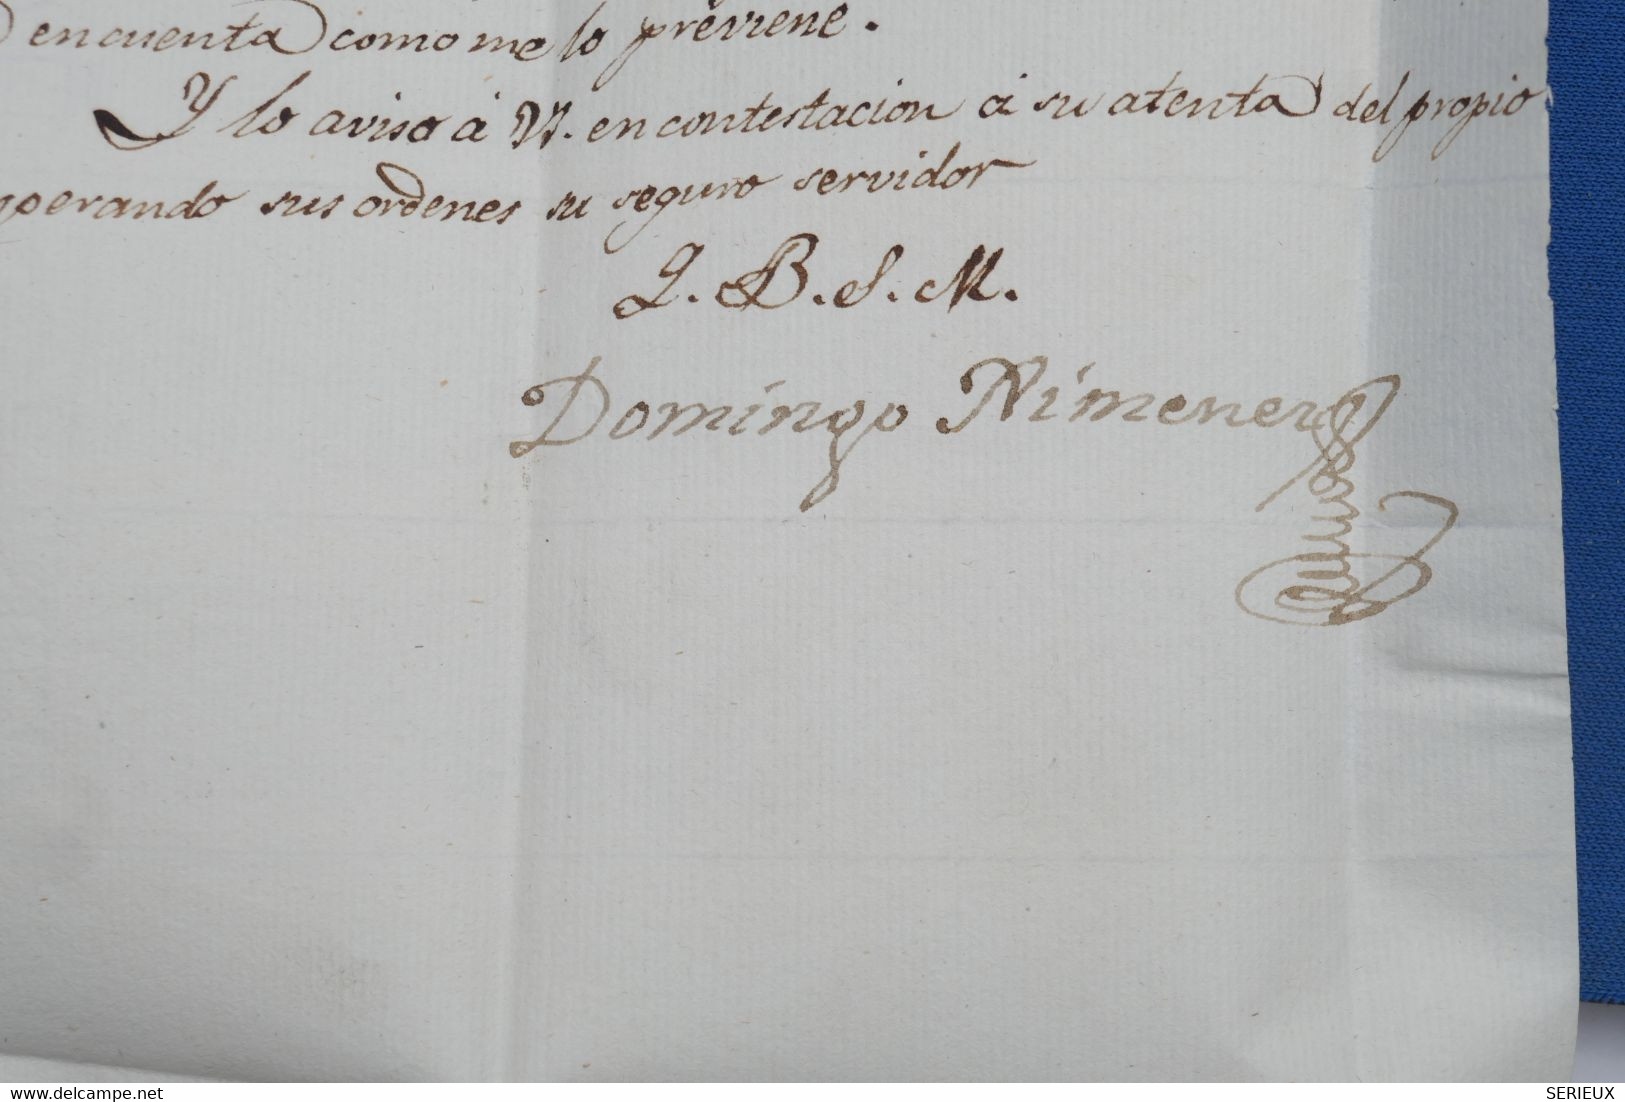 en cuenta como me lo previene.
Y lo aviso á V. en contestacion á su atenta del propio
perando sus ordenes su seguro servidor
Q. B. S. M.
Domingo Ximenez
delcampe.net
SERIEUX